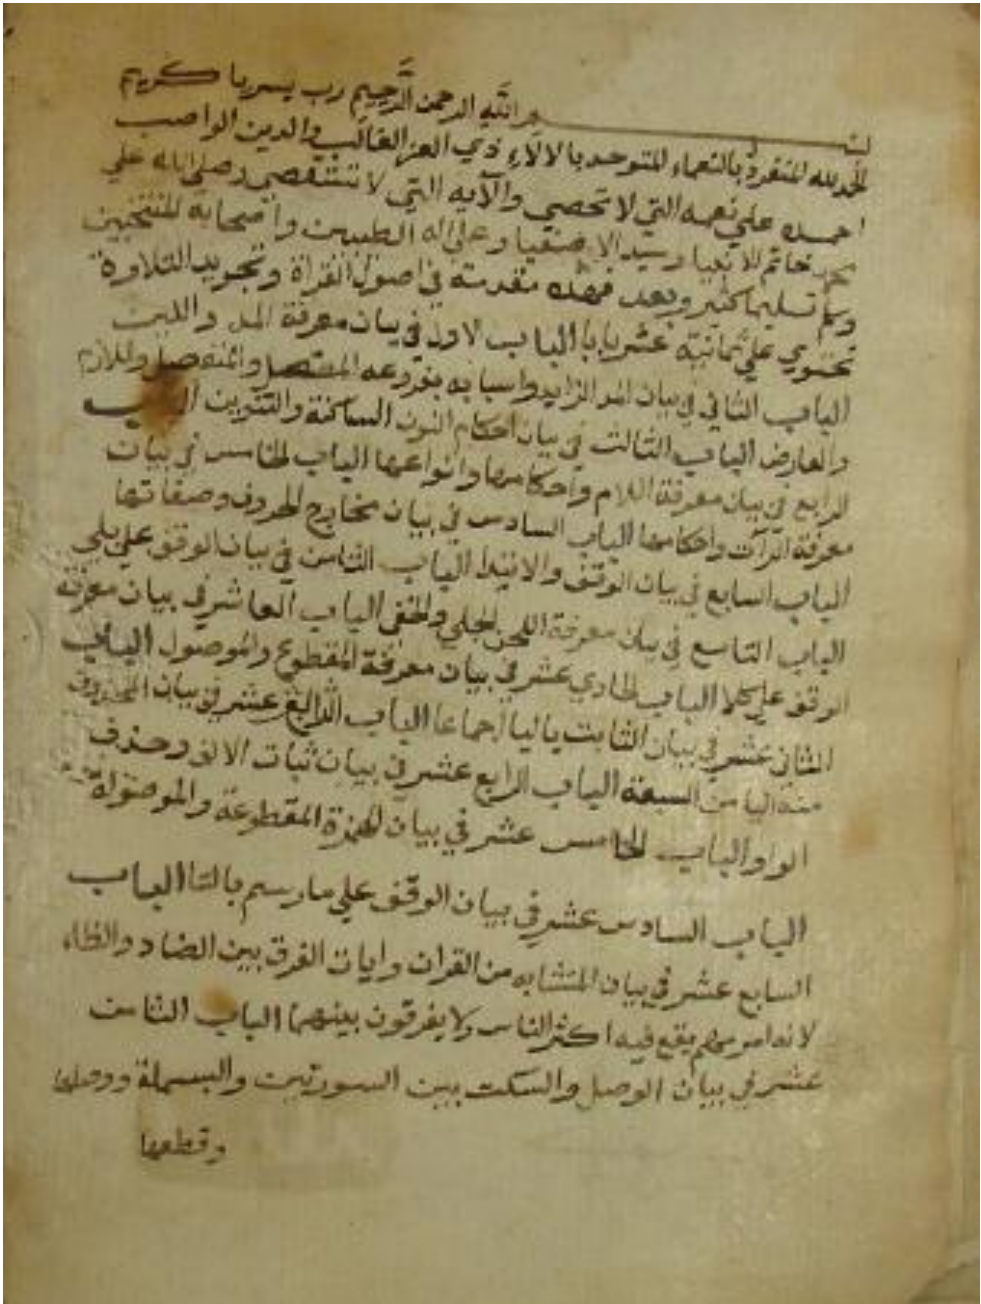 بسم الله الرحمن الرحيم رب يسر يا كريم
الحمد لله المتفرد بالنعماء المتوحد بالالاء ذي العز الغالب والدين الواصب
احمده علي نعمه التي لا تحصي والآيه التي لا تستقصي وصلي الله علي
محمد خاتم الانبيا وسيد الاصفيا وعلي اله الطيبين واصحابه المنتخبين
وسلم تسليما كثير وبعد فهذه مقدمته في اصول القراة وتجويد التلاوة
تحتوي علي ثمانية عشر بابا الباب الاول في بيان معرفة المد واللين
الباب الثاني في بيان المد الزايد واسبابه بفروعه المتصل والمنفصل واللازم
والعارض الباب الثالث في بيان احكام النون الساكنة والتنوين الباب
الرابع في بيان معرفة اللام واحكامها وانواعها الباب الخامس في بيان
معرفة الرآت واحكامها الباب السادس في بيان مخارج الحروف وصفاتها
الباب السابع في بيان الوقف والابتدا الباب الثامن في بيان الوقف علي بلي
الباب التاسع في بيان معرفة اللحن الجلي والخفي الباب العاشر في بيان معرفة
الوقف علي كلا الباب الحادي عشر في بيان معرفة المقطوع والموصول الباب
الثاني عشر في بيان الثابت ياليا اجماعا الباب عشر في بيان المحذوف
منه اليا من السبعة الباب الرابع عشر في بيان ثبات الالف وحذف
الواو الباب الخامس عشر في بيان الهمزة المقطوعة والموصولة
الباب السادس عشر في بيان الوقف علي ما رسم بالتا الباب
السابع عشر في بيان المتشابه من القران وايات الفرق بين الضاد والظاء
لانه امر مهم يقع فيه اكثر الناس ولا يفرقون بينهما الباب الثامن
عشر في بيان الوصل والسكت بين السورتين والبسملة ووصلها
وقطعها